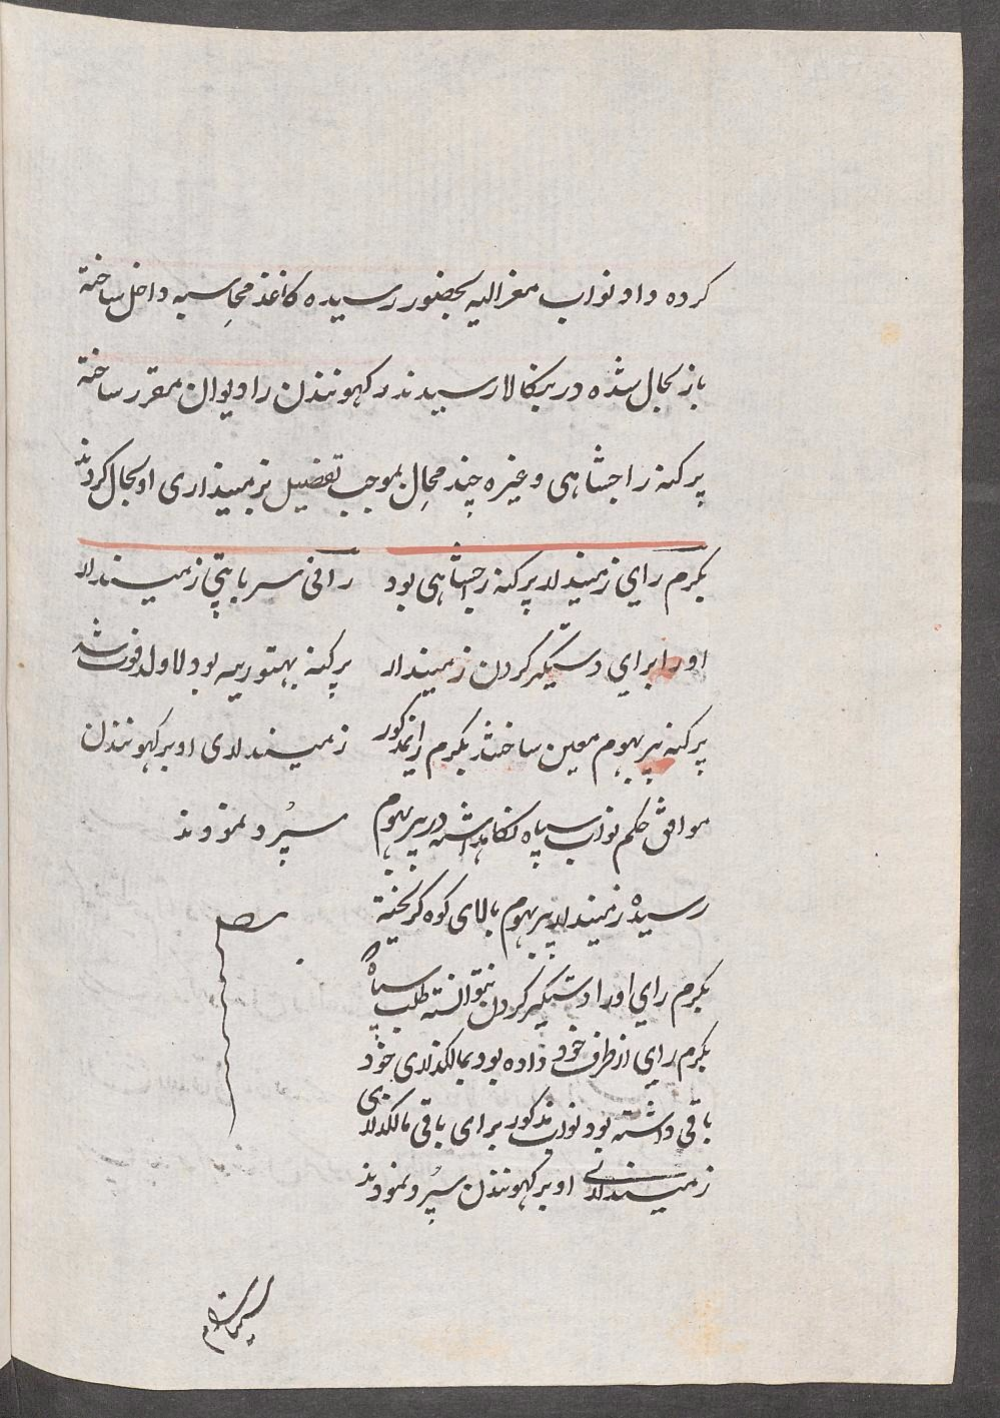 کرده داد نواب معز الیه بحضور رسیده کاغذ محاسبه داخل ساخته
باز بحال شده در بنکالا رسیدند رکهونندن را دیوان مقرر ساخته
پرکنه راجشاهی و غیره چند محال بموجب تفصیل بزمینداری او بحال کردند
بکرم رای زمیندار پرکنه راجشاهی بود
او را برای دستکیر کردن زمیندار
پرکنه بیربهوم معین ساختند بکرم رای مذکور
موافق حکم نواب سپاه نکاهداشته در بیربهوم
رسیده زمیندار بیربهوم بالای کوه کریخته
بکرم رای او را دستکیر کردن نتوانسته طلب سپاه
بکرم رای از طرف خود داده بود بمالکذاری خود
باقی داشته بود نواب مذکور برای باقی مالکذاری
زمینداری او برکهونندن سپرد نمودند
رانی سربانی زمیندار
پرکنه بهتوریه بود لاولد فوت شد
زمینداری او برکهونندن
سپرد نمودند